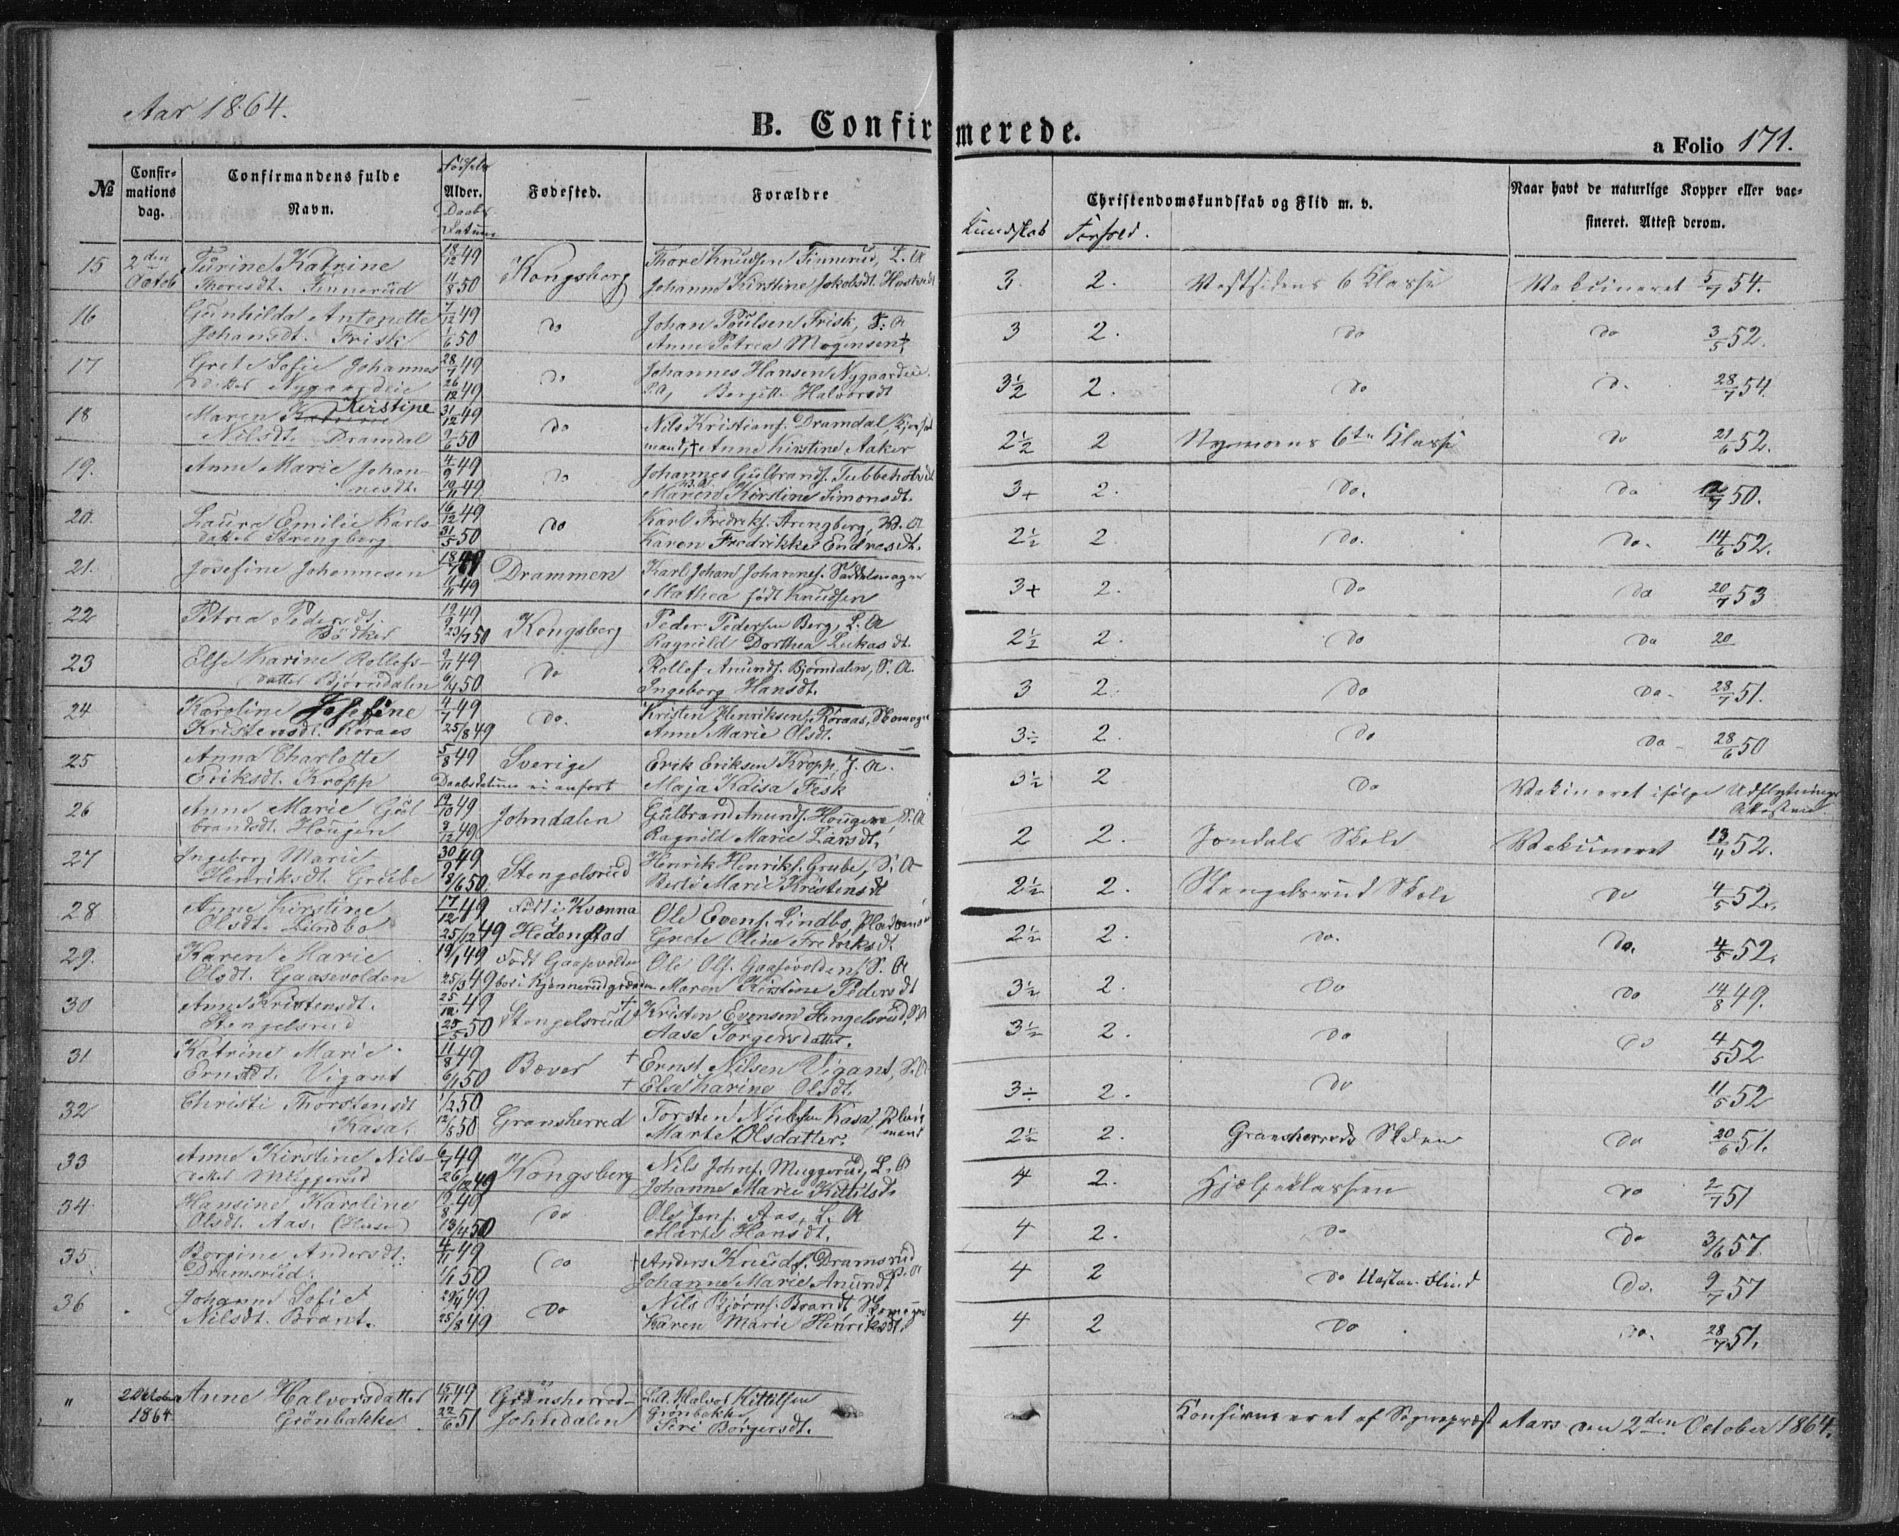 Aar 1864.
B. Confirmerede.
a Folio 171.
№ Confirmations dag. Confirmandens fulde Navn. Fødsels Alder. Daabs Datum Fødested. Forældre Kundskab Forhold. Christendomskundskab og Flid m. v. Naar havt de naturlige Kopper eller vaccineret. Attest derom.
15 2den Octob Turine Katrine 18/12 49 Kongsberg Thore Knudsen Finnerud, L. A 3. 2. Vestsidens 6 Klasse Vakcineret 5/7 54.
Thoresdt. Finnerud 11/8 50 Johanne Kirstine Jakobsdt.
16 Gunhilda Antonette 7/12 49 do Johan Poulsen Frisk, 3 2. do do 3/5 52.
Johansdt. Frisk 1/6 50 Anne Petrea Mogensen †
17 Grete Sofie Johannes 28/7 49 do Johannes Hansen Nygaardeie 3½ 2. do do 28/7 54.
datter Nygaardeie 26/12 49 S. A, Bergitte Halvorsdt
18 Maren Kirstine 31/12 49 do Nils Kristians. Dramdal 2½ 2 Nymoens 6te Klasse do 21/6 52.
Nilsdt. Dramdal 9/6 50 mand, † Anne Kirstine Aaker
19. Anne Marie Johan- 4/9 49 do Johannes Gulbrands. 3+ 2. do. do 12/7 50.
nesdt. 19/11 49 Maren Kirstine Simonsdt.
20. Laura Emilie Karls- 16/12 49 do Karl Fredriks. Strengberg, B. A 2½ 2. do. do. 14/6 52.
datter Strengberg 31/5 50 Karen Fredrikke Endresdt.
21. Josefine Johannesen 18/7 49 Drammen Karl Johan Johannes. Saddelmager 3+ 2. do da 20/7 53
11/11 49 Mathea født Knudsen
22 Petrea Pedersdt. 19/9 49 Kongsberg Peder Pedersen Berg, L. A 2½ 2. do da 20
Bødker 23/7 50 Ragnild Dorthea Lukasdt.
23 Else Karine Rollefs- 9/11 49 do Rollef Anunds. Bjørndalen, S. A. 3 2. do da. 28/7 51.
datter Bjørndalen 6/1 50 Ingeborg Hansdt.
24 Karoline Josefine 4/7 49 do. Kristen Henriksen Roraas, Skomager 3÷ 2. do da 28/6 50
Kristensdt. Roraas 25/8 49 Anne Marie Olsdt.
25 Anna Charlotte 5/8 49 Sverige Erik Eriksen Kropp, J. A. 3½ 2 do Vakcineret ifølge Udflytnings Attesten.
Eriksdt. Kropp Daabsdatum ei anført Maja Kaisa Fisk
26 Anne Marie Gul 19/10 49 Johndalen Gulbrand Anunds. Hougen, S. A 2 2. Jondals Skole Vakcineret 13/4 52.
brandsdt. Hougen 9/12 49 Ragnild Marie Larsdt.
27 Ingeborg Marie 30/9 49 Stengelsrud Henrik Henriks. Grube, S. A 2½ 2. Stengelsrud Skole do 4/5 52.
Henriksdt. Grube 8/6 50. Berte Marie Kristensdt
28 Anne Kirstine 17/12 49 Født i Kvænna Ole Evens. Lindbo, 2½ 2. do. do. 4/5 52.
Olsdt. Lindbo 25/12 49 Hedenstad Grete Oline Fredriksdt.
29. Karen Marie 19/1 49 Født Gaasevolden Ole Ols. Gaasevolden S. A 3½ 2. do do 14/8 49.
Olsdt. Gaasevolden 25/3 49 bor i Kjennerudgrænden Maren Kirstine Pedersdt
30 Anne Kristensdt. 25/12 49 Stengelsrud † Kristen Evensen Stengelsrud, S A 3½ 2. do do 4/5 52
Stengelsrud 25/5 50 Aase Torgersdatter.
31 Katrine Marie 11/8 49 Bæver † Ernst Nilsen Vigant, S. A 3÷ 2. do 11/5 52
Ernstdt. Vigant 6/1 50 † Else Karine Olsdt.
32 Christi Thorstensdt 1/2 50 Gransherred Torsten Nielsen Kasa, 2½ 2. Gransherreds Skolen do 20/6 51.
Kasa. 12/5 50 Marte Olsdatter.
33 Anne Kirstine Nils- 6/7 49 Kongsberg Nils Johns. Muggerud, L. A 4 2. Hjælpeklassen do 2/7 51
datter Muggerud 26/12 49 Johanne Marie Kittilsdt.
34 Hansine Karoline 19/8 49 do Ole Jens. Aas, L. A 4 2. do do 3/6 57.
Olsdt. Aas. 13/4 50 Marte Hansdt.
35 Borgine Andersdt. 4/11 49 do † Anders Knuds. Dramsrud 4 2 do Do. 9/7 57
Dramsrud. 1/1 50 Johanne Marie Anundt
36 Johanne Sofie 29/4 49 do Nils Bjørns. Brandt Skomager 4 2 do do. 28/7 51.
Nilsdt. Brant. 25/8 49 Karen Marie Henriksdt.
" 2 Octobr 1864 Anne Halvorsdatter 15/11 49 Gransherred- L. A. Halvor Kittilsen
Grönbakke 22/6 51 Johndalen Grönbakke
Siri Børgersdt. Konfirmeret af Sognepræst Aars den 2den October 1864.